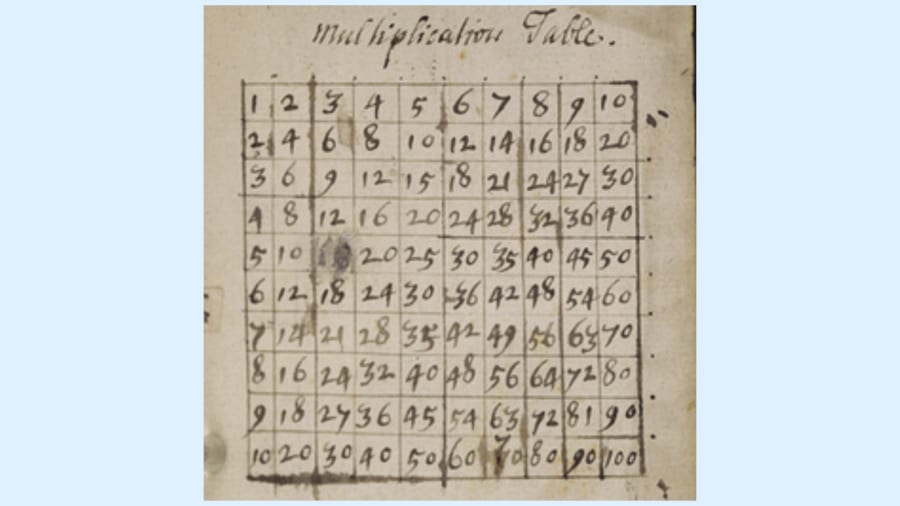 Multiplication Table.
1 2 3 4 5 6 7 8 9 10
2 4 6 8 10 12 14 16 18 20
3 6 9 12 15 18 21 24 27 30
4 8 12 16 20 24 28 32 36 40
5 10 20 25 30 35 40 45 50
6 12 18 24 30 36 42 48 54 60
7 14 21 28 35 42 49 56 63 70
8 16 24 32 40 48 56 64 72 80
9 18 27 36 45 54 63 72 81 90
10 20 30 40 50 60 70 80 90 100